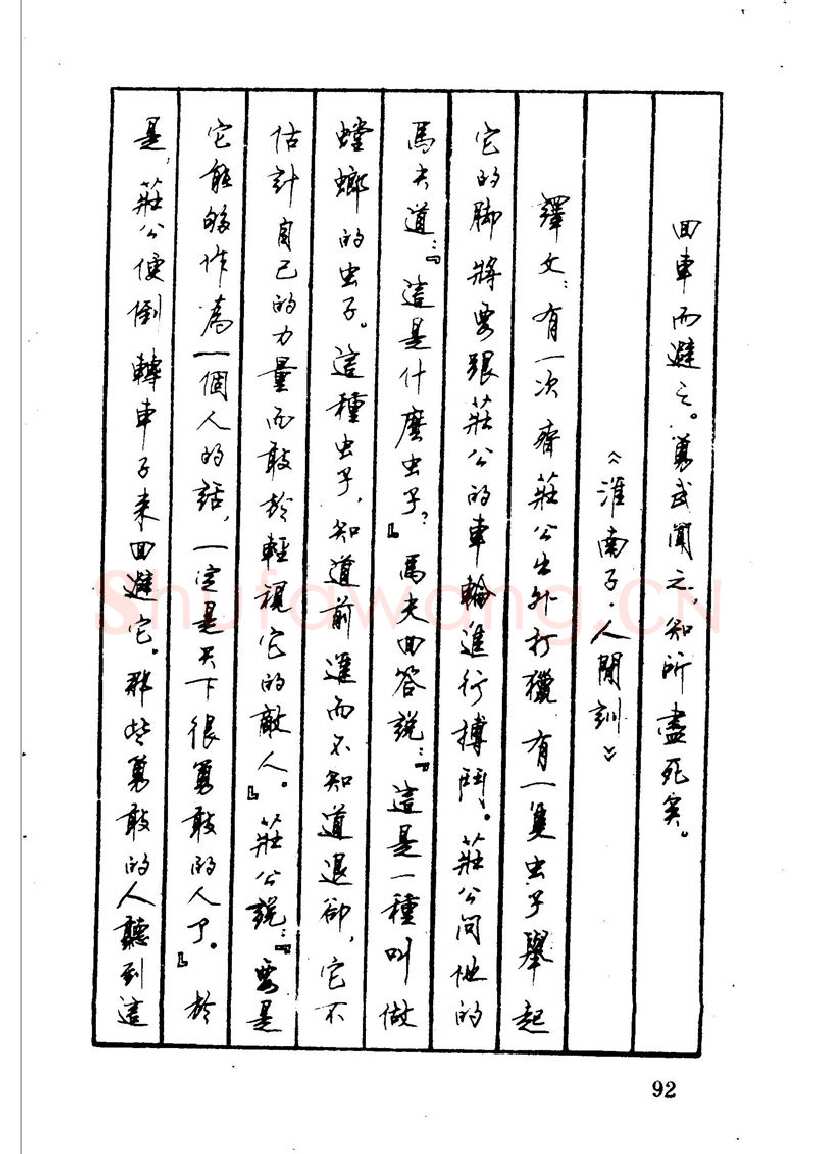 回車而避之。勇武聞之知所盡死矣。
《淮南子·人間訓》
譯文：有一次齊莊公出外打獵有一隻虫子舉起
它的脚將要跟莊公的車輪進行搏鬥。莊公問他的
馬夫道：『這是什麽虫子？』馬夫回答說：『這是一種叫做
螳螂的虫子。這種虫子，知道前進而不知道退卻，它不
估計自己的力量而敢於輕視它的敵人。』莊公說：『要是
它能够作為一個人的話，一定是天下很勇敢的人了。』於
是，莊公便倒轉車子来回避它。那些勇敢的人聽到這
92
Shufawang.CN